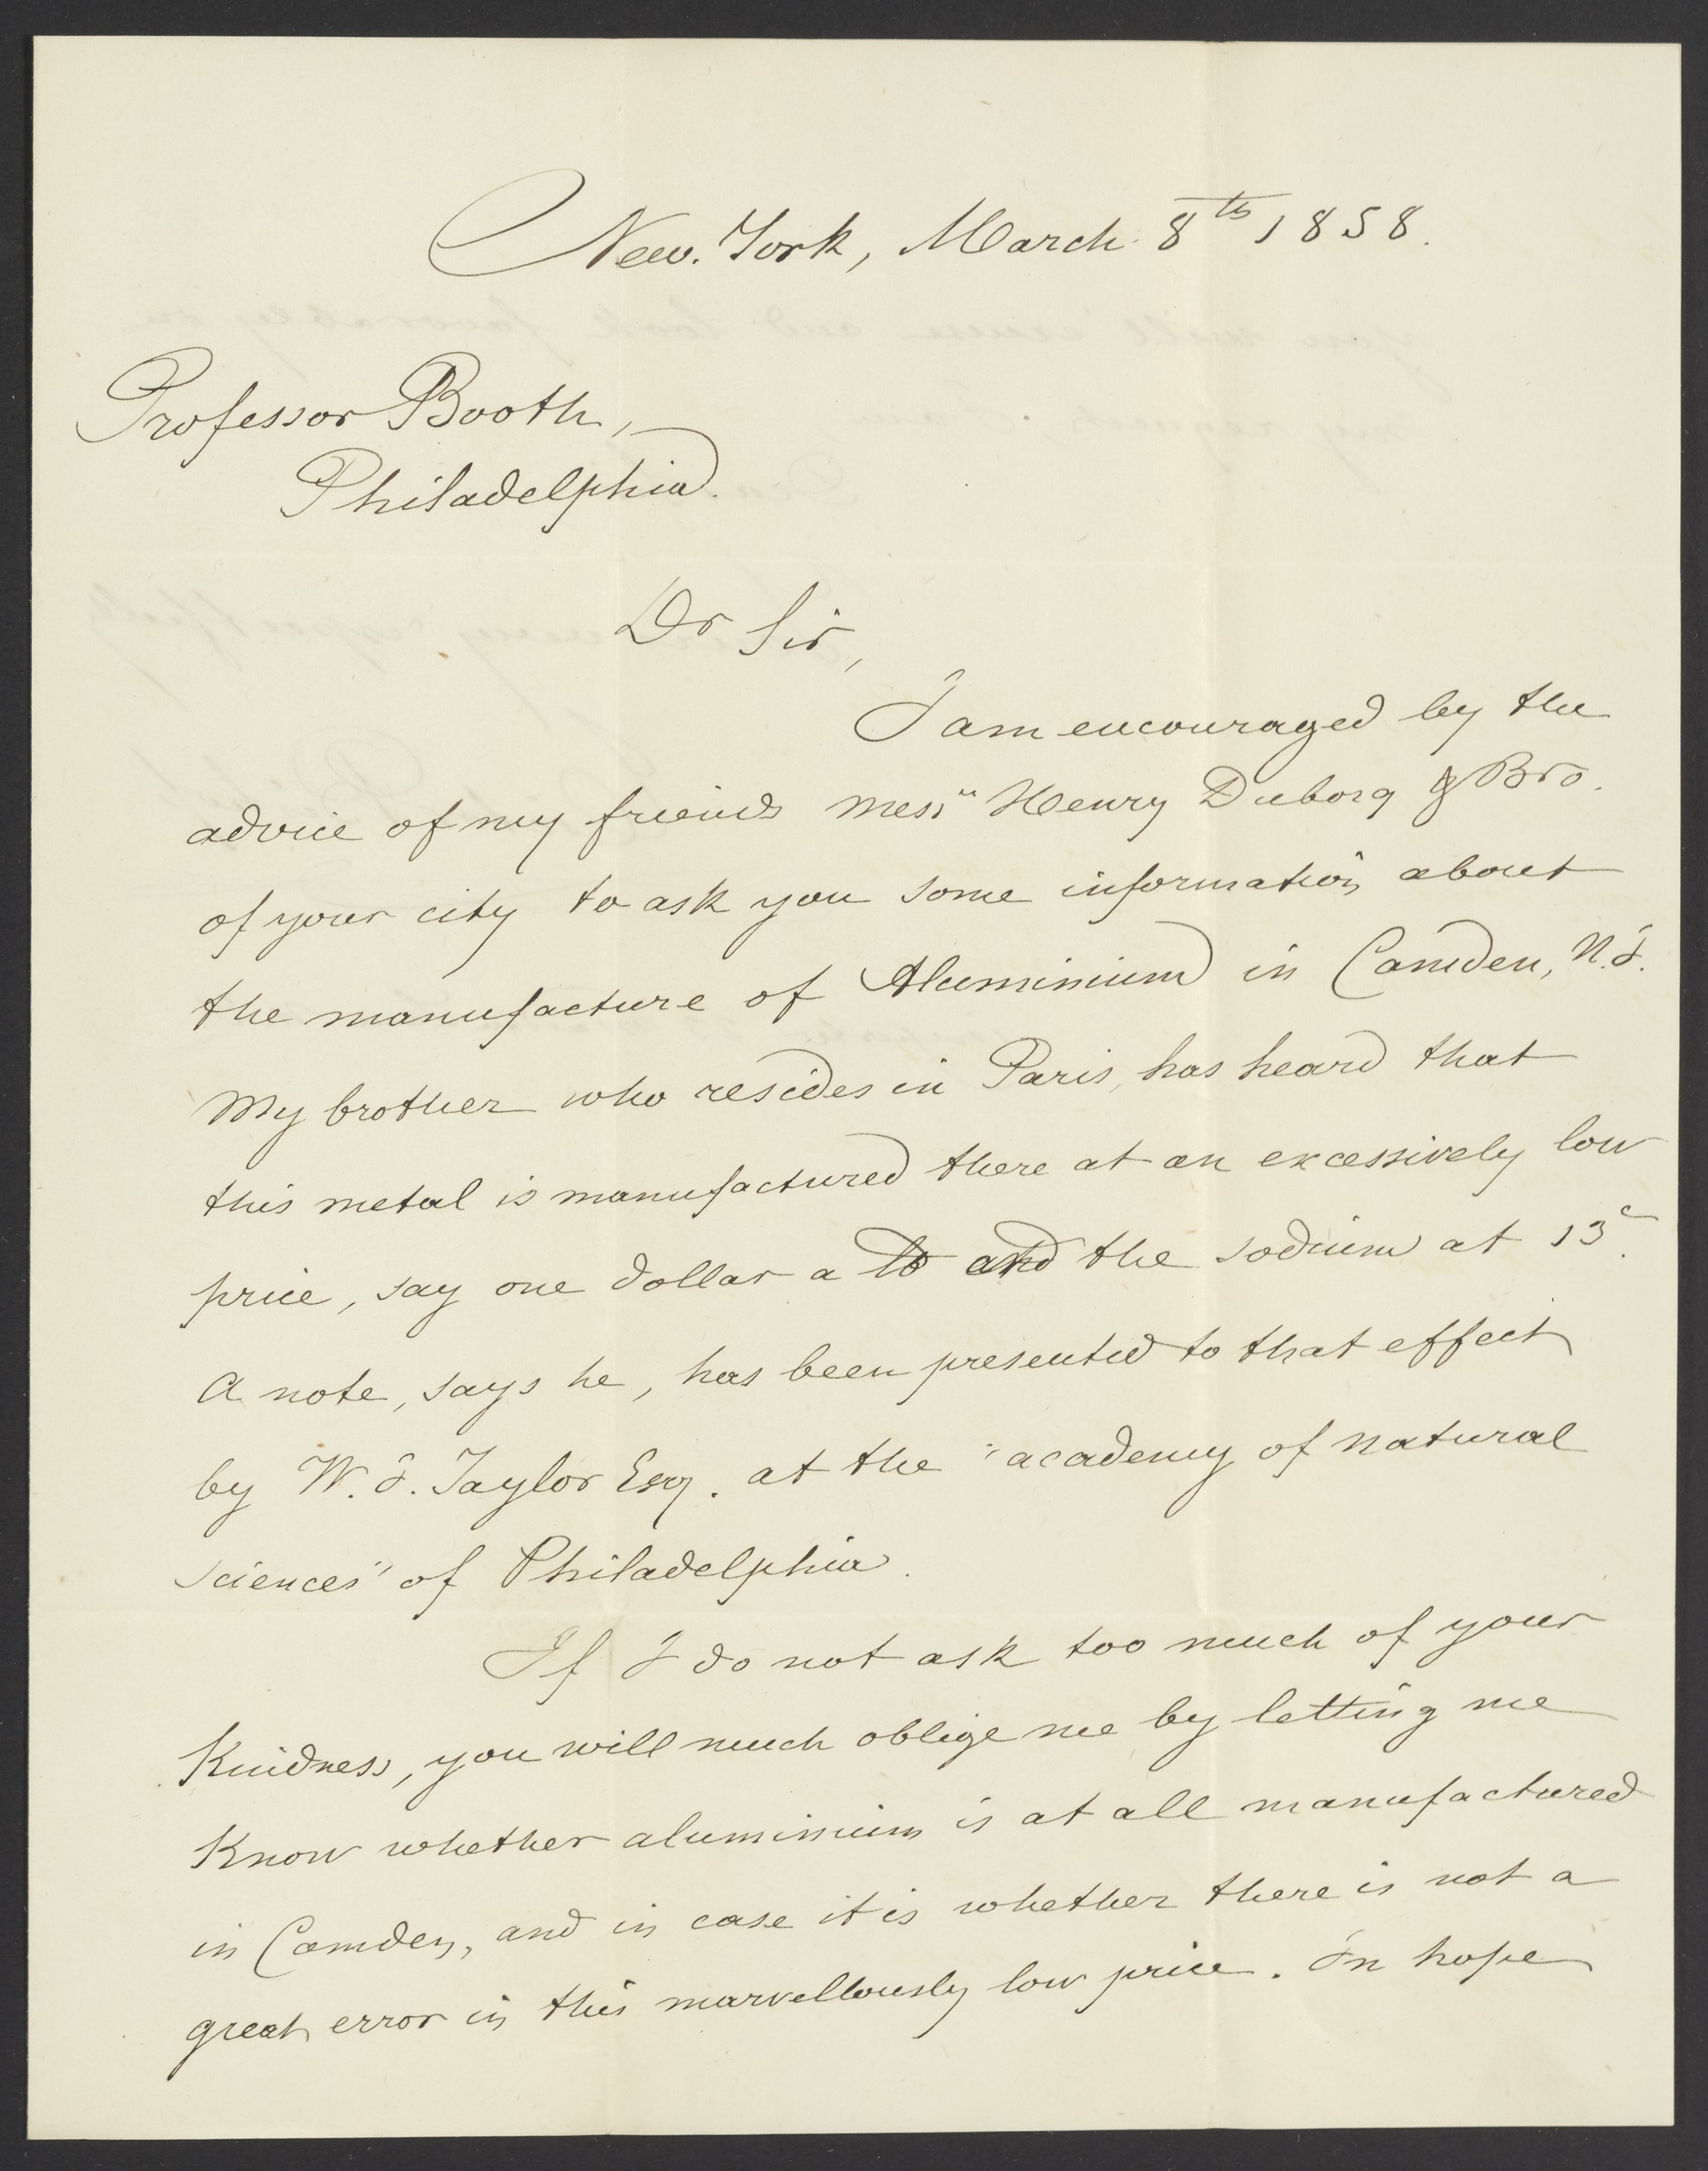 New. York, March 8th 1858.
Professor Booth,
Philadelphia.
Dr Sir,
I am encouraged by the
advice of my friends Messrs Henry Duborg & Bro.
of your city to ask you some information about
the manufacture of Aluminium in Camden, N.J.
My brother who resides in Paris, has heard that
this metal is manufactured there at an excessively low
price, say one dollar a lb and the sodium at 13c.
A note, says he, has been presented to that effect
by W. J. Taylor Esq. at the "academy of natural
sciences" of Philadelphia.
If I do not ask too much of your
Kindness, you will much oblige me by letting me
Know whether aluminium is at all manufactured
in Camden, and in case it is whether there is not a
great error in this marvellously low price. In hope